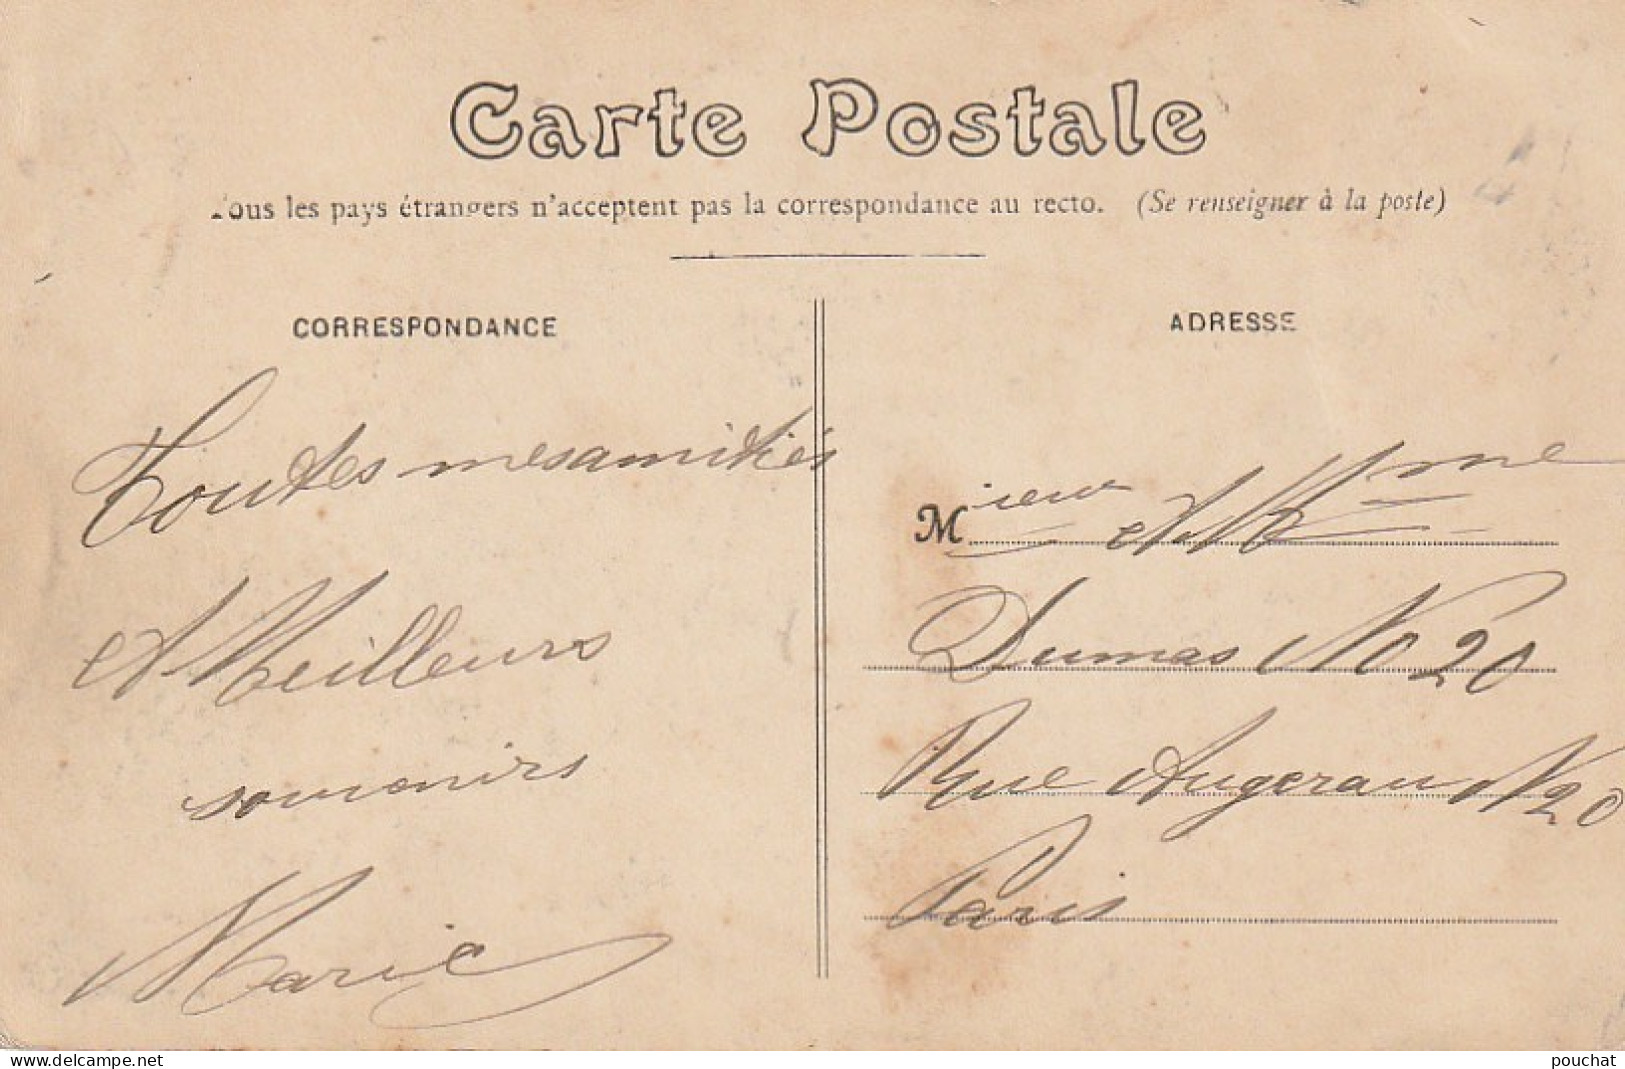 Carte Postale
Tous les pays étrangers n'acceptent pas la correspondance au recto. (Se renseigner à la poste)
CORRESPONDANCE
Toutes mes amitiés
et Meilleurs
souvenirs
Marie
ADRESSE
Mieur et Mme
Dumas No 20
Rue Augerau N 20
Paris
www.delcampe.net
pouchat